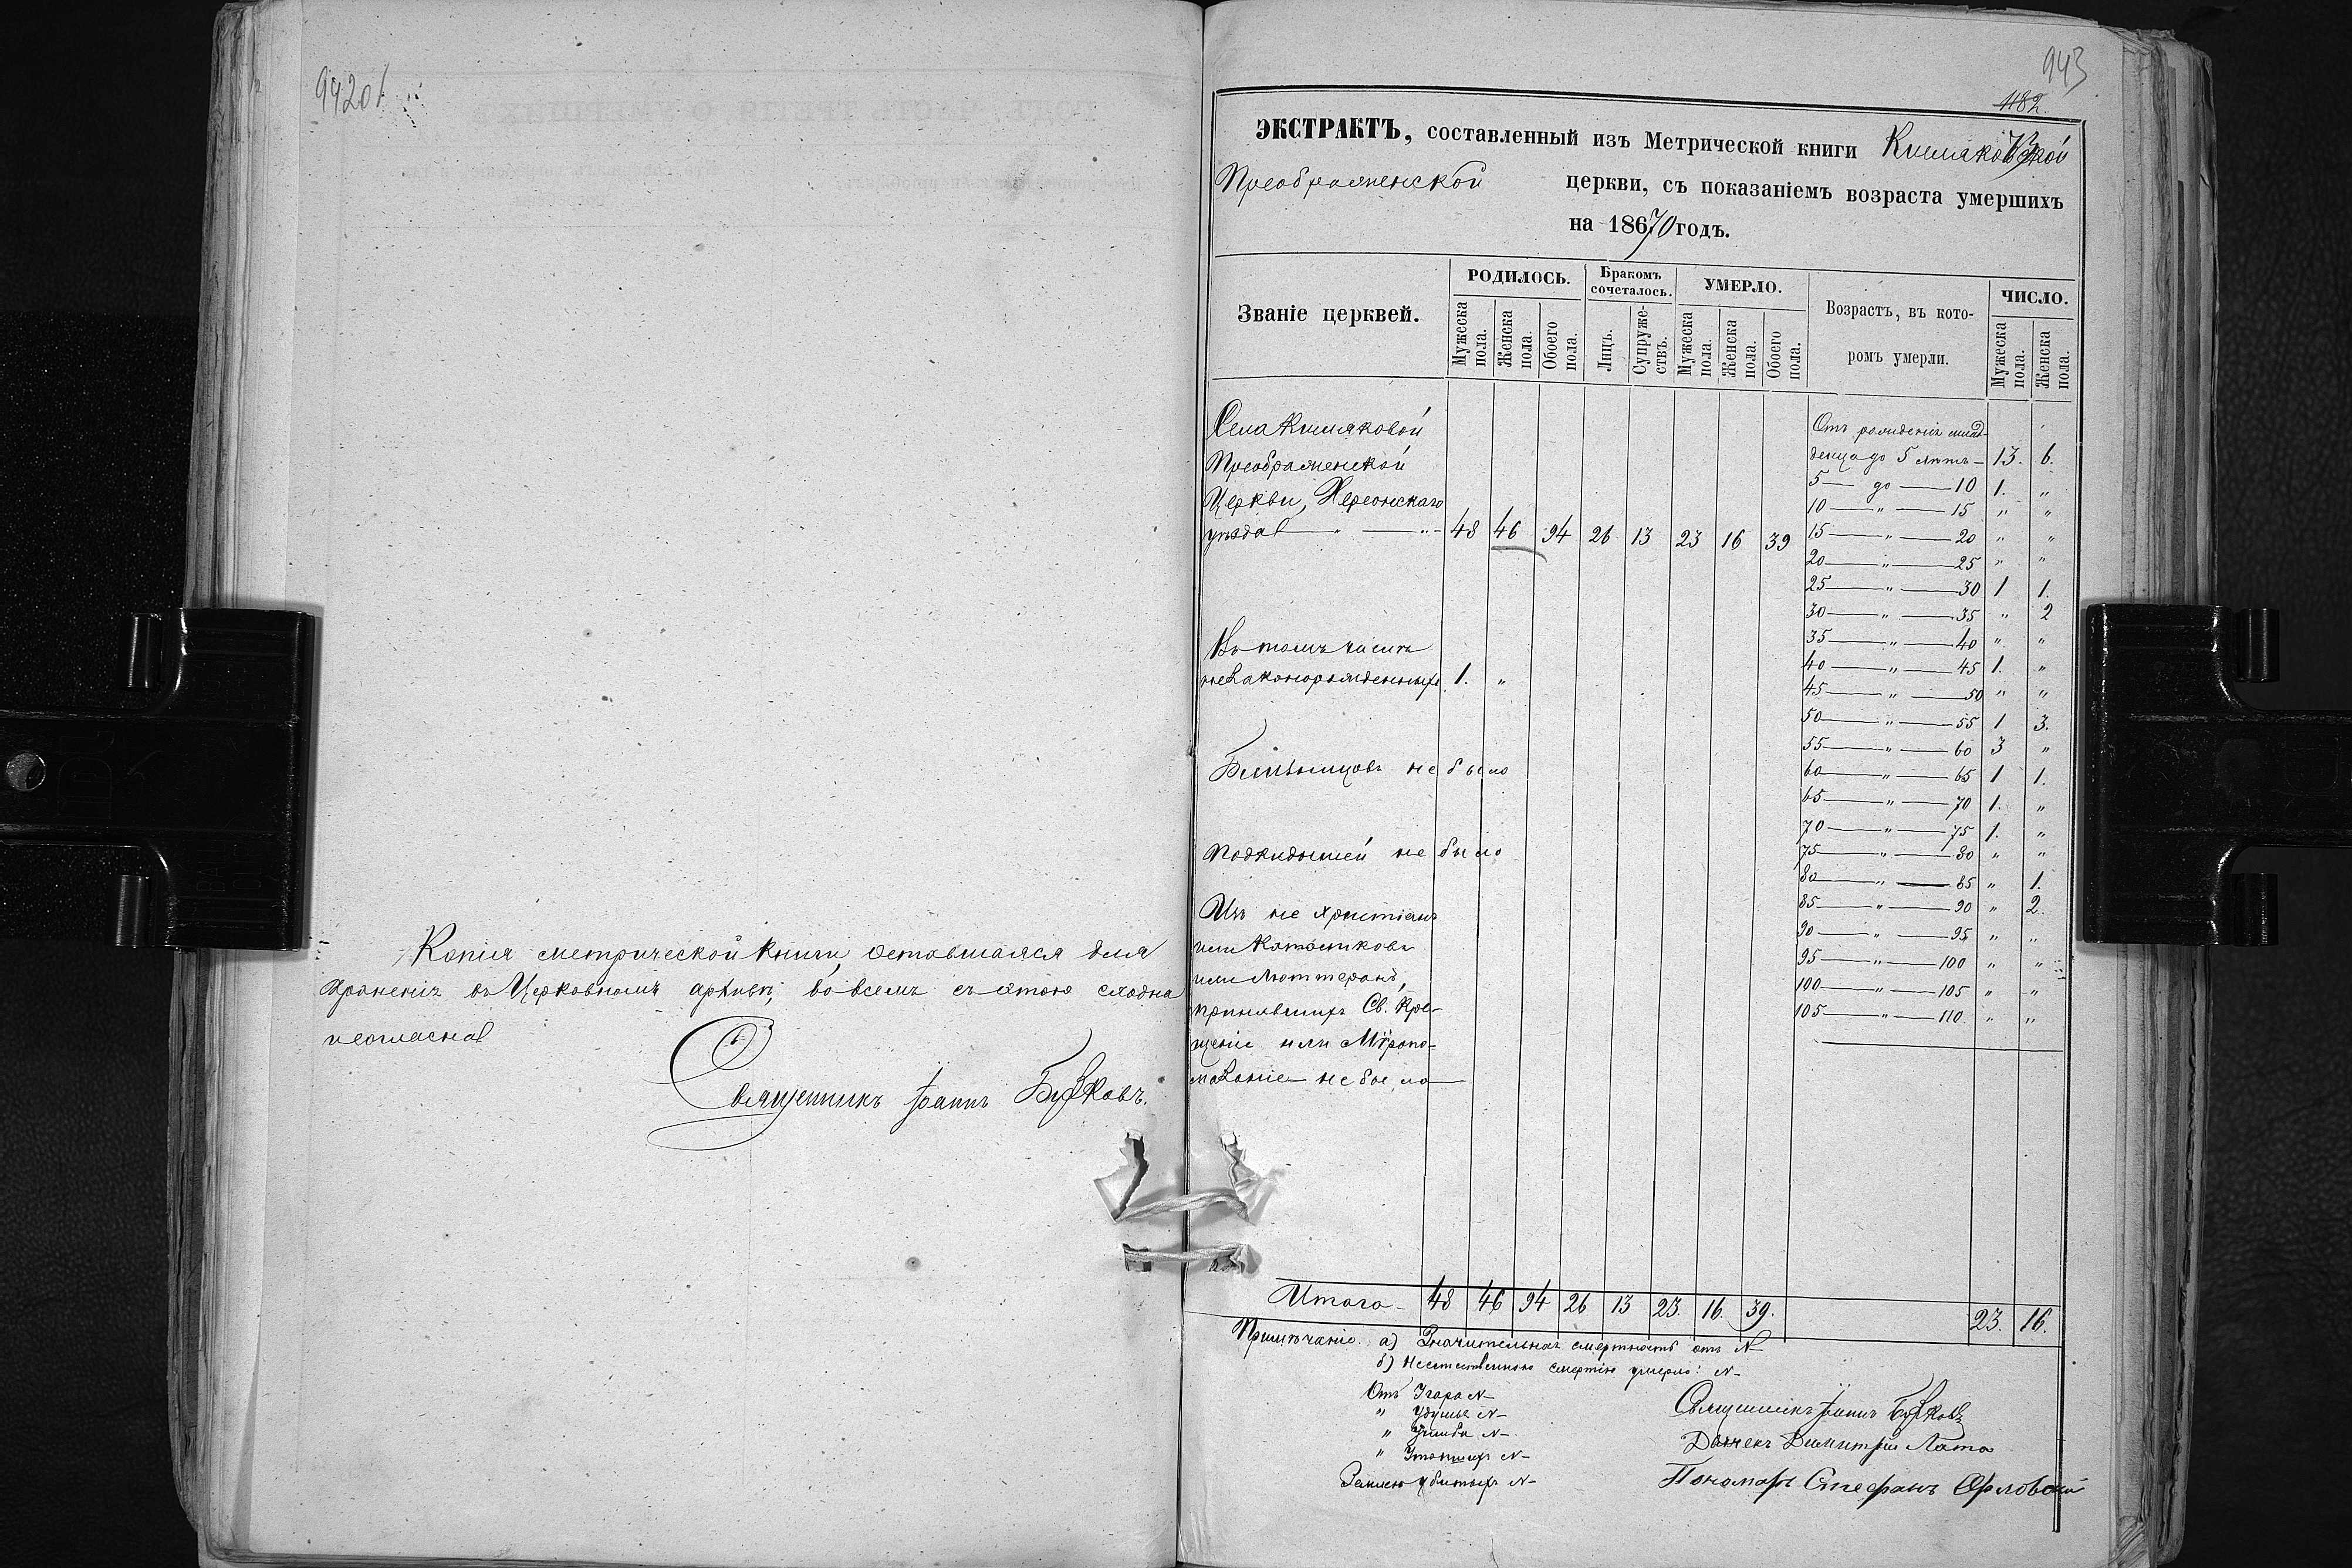 942об
Копія метрической книги, оставшаяся для
храненія въ Церковномъ архивѣ, во всемъ съ этою сходна
и согласна
Священникъ Іоаннъ Бузковъ.
943
1182
73
ЭКСТРАКТЪ, составленный изъ Метрической книги Кисляковской
Преображенской церкви, съ показаніемъ возраста умершихъ
на 18670 годъ.
Званіе церквей.
РОДИЛОСЬ.
Бракомъ сочеталось.
УМЕРЛО.
Возрастъ, въ кото-
ромъ умерли.
ЧИСЛО.
Мужеска пола.
Женска пола.
Обоего пола.
Лицъ.
Супруже-
ствъ.
Мужеска пола.
Женска пола.
Обоего пола.
Мужеска пола.
Женска пола.
Села Кисляковой
Преображенской
Церкви, Херсонскаго
уѣзда — " — " - 48 46 94 26 13 23 16 39
Въ томъ числѣ
незаконорожденныхъ 1. "
Близнецовъ не было
Подкидышей не было
Изъ не христіанъ
или Католиковъ
или Люттеранъ,
принявшихъ Св. Кре-
щеніе или Мѵропо-
мазаніе — не было
Отъ рожденія мла-
денца до 5 лѣтъ — 13. 6.
5 — до — 10 1. "
10 — " — 15 " "
15 — " — 20 " "
20 — " — 25 " "
25 — " — 30 1 1.
30 — " — 35 " 2
35 — " — 40 " "
40 — " — 45 1. "
45 — " — 50 " "
50 — " — 55 1 3.
55 — " — 60 3 "
60 — " — 65 1 1.
65 — " — 70 1. "
70 — " — 75 1. "
75 — " — 80 " "
80 — " — 85 " 1.
85 — " — 90 " 2.
90 — " — 95 " "
95 — " — 100 " "
100 — " — 105 " "
105 — " — 110 " "
Итого - 48 46 94 26 13 23. 16. 39. 23. 16.
Примѣчаніе. а) Значительная смертность отъ N
б) Неестественною смертію умерло: N-
Отъ Угара N-
" Удушья N-
" Ушиба N-
" Утопшихъ N-
Землею убитыхъ N-
Священникъ Іоаннъ Бузковъ
Дьячекъ Димитрій Лата
Пономарь Стефанъ Орловскій